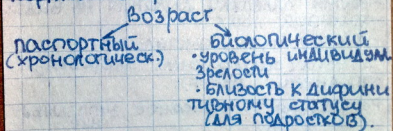 Возраст
паспортный
(хронологическ.)
биологический
• уровень индивидуал.
зрелости
• близость к дифини
тивному статусу
(для подростков).